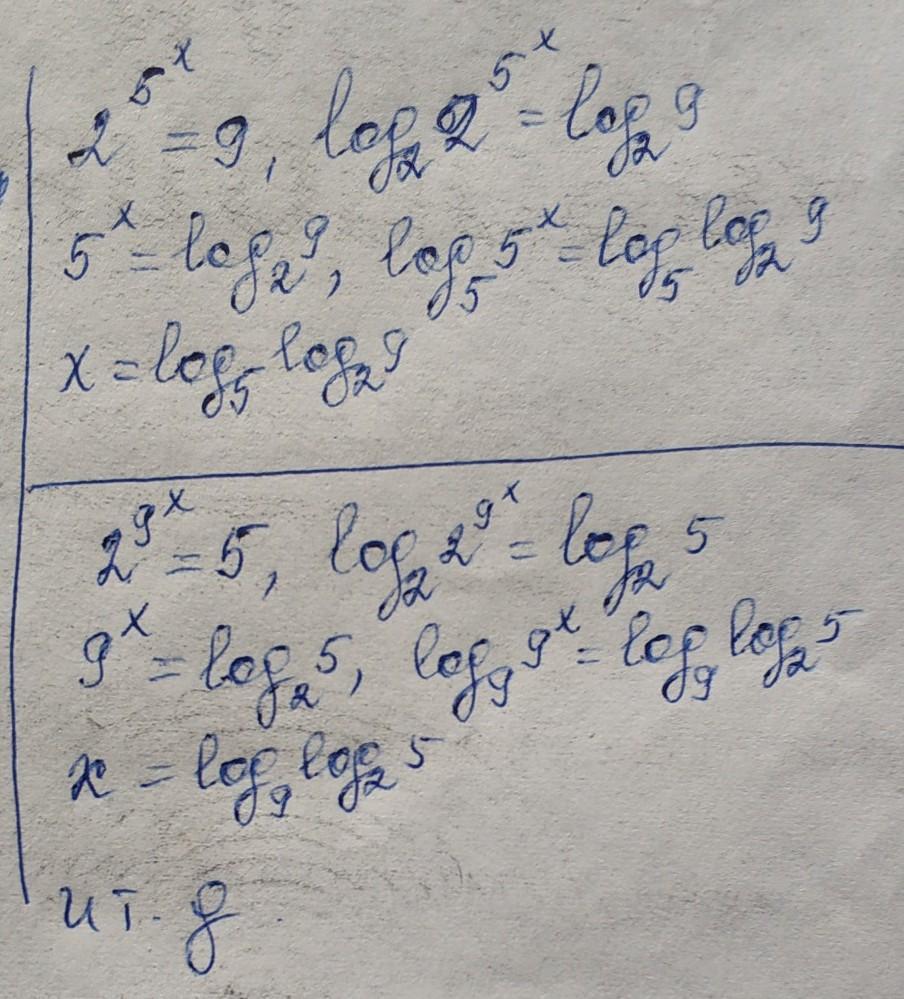 2^{5^x} = 9, log_2 2^{5^x} = log_2 9
5^x = log_2 9, log_5 5^x = log_5 log_2 9
x = log_5 log_2 9
2^{9^x} = 5, log_2 2^{9^x} = log_2 5
9^x = log_2 5, log_9 9^x = log_9 log_2 5
x = log_9 log_2 5
и т. д.